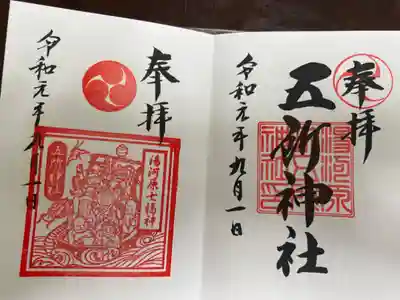 奉拝
五所神社
令和元年九月一日
奉拝
湯河原七福神
五所神社
令和元年九月一日